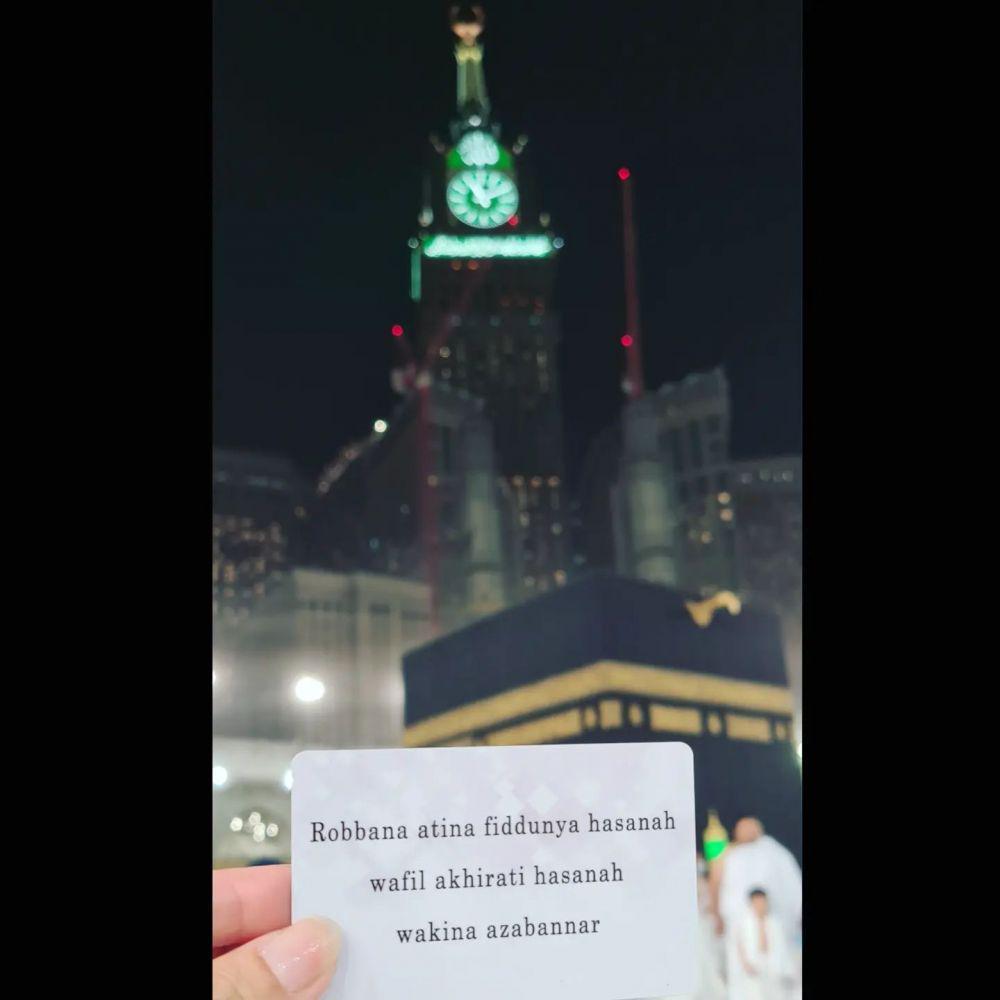 Robbana atina fiddunya hasanah
wafil akhirati hasanah
wakina azabannar